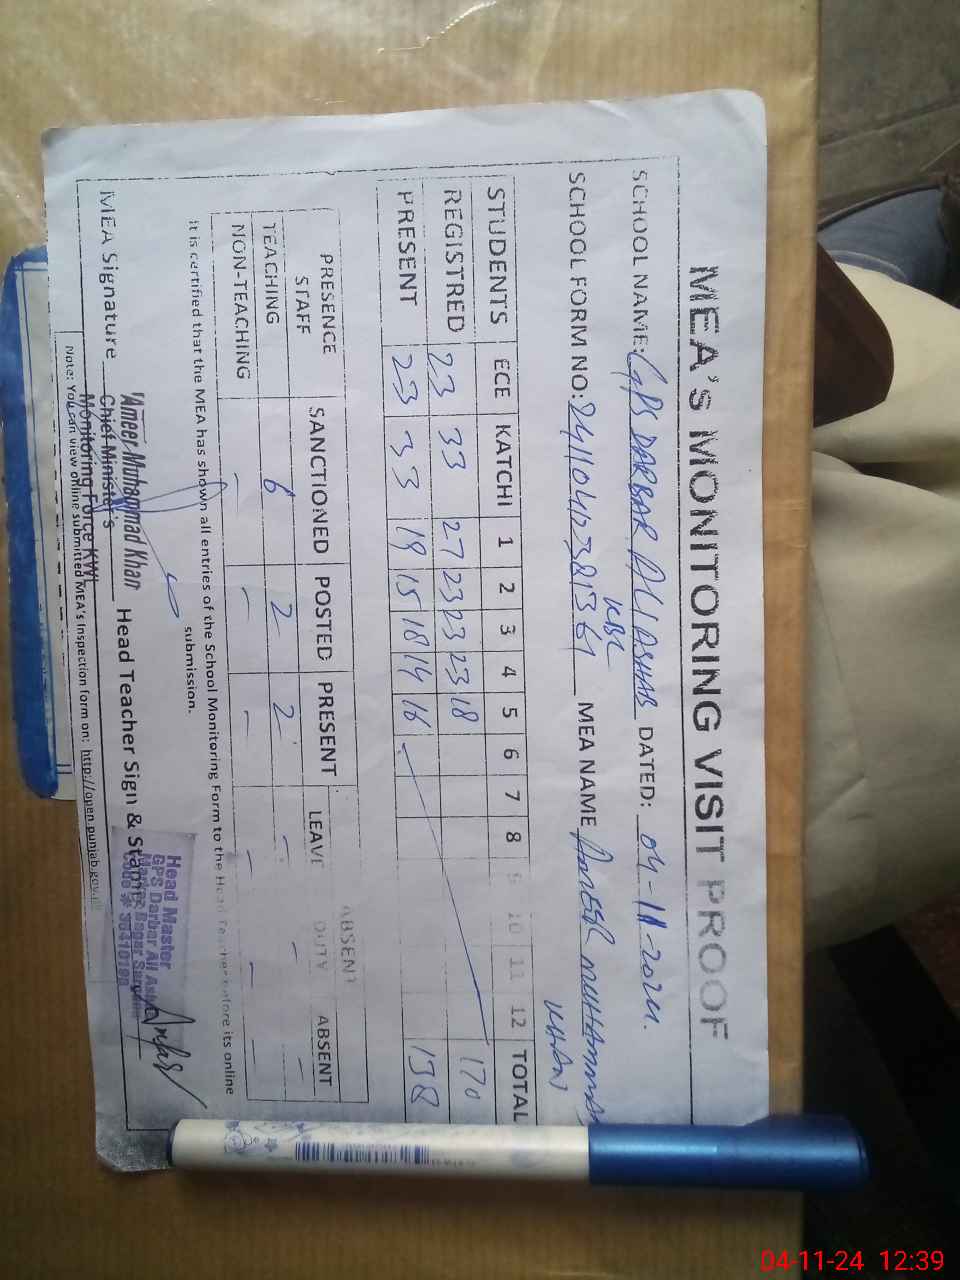 MEA'S MONITORING VISIT PROOF
SCHOOL NAME: GPS DARBAR ALI ASHAB DATED: 04-11-2024.
KBL
SCHOOL FORM NO: MEA NAME AMEER MUHAMMAD
KHAN
STUDENTS ECE KATCHI 1 2 3 4 5 6 7 8 9 10 11 12 TOTAL
REGISTRED 23 33 27 23 23 23 18 170
PRESENT 23 33 19 15 18 14 16 138
PRESENCE ABSENT
STAFF SANCTIONED POSTED PRESENT LEAVE DUTY ABSENT
TEACHING 6 2 2 - - -
NON-TEACHING - - - - - -
It is certified that the MEA has shown all entries of the School Monitoring Form to the Head Teacher before its online
submission.
MEA Signature Head Teacher Sign & Stamp
Ameer Muhammad Khan
Chief Minister's
Monitoring Force KWL
Head Master
GPS Darbar Ali Ashab
Markaz Bagar Sargana
Note: You can view online submitted MEA's Inspection form on: http://open.punjab.gov.
04-11-24 12:39